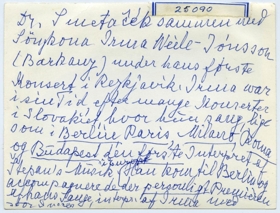 25090
Dr. Smetaček sammen med
Söngkona Irma Weile-Jónsson
(Barkany) under hans første
Konsert i Reykjavik. Irma var
i sin tid efter mange Konserter
i Slovakiet hvor hun sang lige
som i Berlin Paris Milano Roma
og Budapest den første Interpret af
Musik. Han kom til Berlin og
der personligt
Irma med